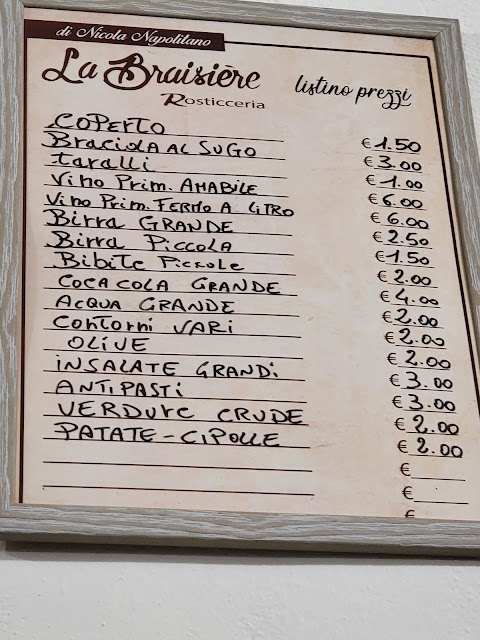 di Nicola Napolitano
La Braisière
Rosticceria
listino prezzi
COPERTO € 1.50
BRACIOLA AL SUGO € 3.00
taralli € 1.00
Vino Prim. AMABILE € 6.00
Vino Prim. FERMO A LITRO € 6.00
Birra GRANDE € 2.50
Birra Piccola € 1.50
Bibite Piccole € 2.00
COCA COLA GRANDE € 4.00
ACQUA GRANDE € 2.00
Contorni VARI € 2.00
OLIVE € 2.00
INSALATE GRANDI € 3.00
ANTIPASTI € 3.00
VERDURE CRUDE € 2.00
PATATE - CIPOLLE € 2.00
€
€
€